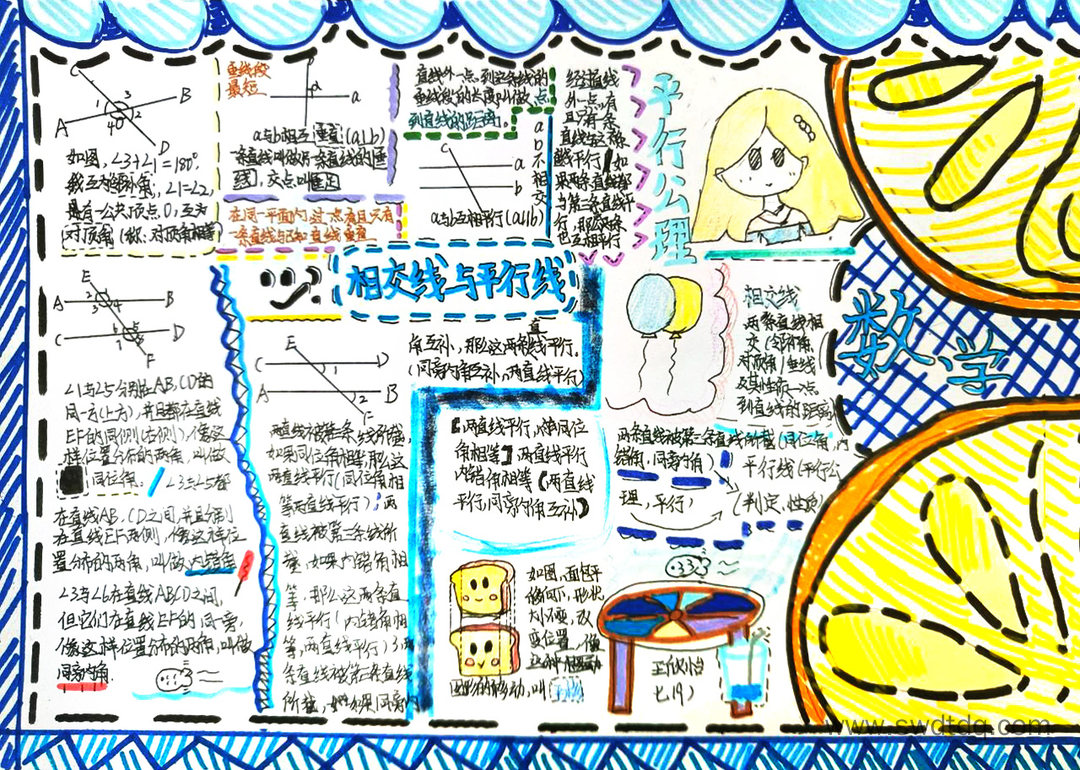 C
3
1
2
4
O
A
B
D
如图,∠3+∠1=180°
∠1=∠2,
是有一公共顶点O,互为
对顶角(称:对顶角相等)
垂线段
最短
a
a与b相互垂直(a⊥b)
一条直线叫做另一条直线的垂
线,交点叫垂足
在同一平面内,过一点有且只有
一条直线与已知直线垂直
直线外一点,到这条直线的
垂线段的长度,叫做点
到直线的距离。
C
a
b
a与b互相平行(a∥b)
a
b
不
相
交
经过直线
外一点,有
且只有一条
直线与这条
直线平行,如
果两条直线都
与第三条直线平
行,那么两条
也互相平行
平行公理
相交线与平行线
数学
E
A
B
C
D
F
∠1与∠5分别在AB,CD的
同一方(上方),并且都在直线
EF的同侧(右侧),像这
样位置分布的两角,叫做
同位角.
∠3与∠5都
在直线AB,CD之间,并且分别
在直线EF两侧,像这样位
置分布的两角,叫做内错角
∠3与∠6在直线ABCD之间,
但它们在直线EF的同一旁,
像这样位置分布的两角,叫做
同旁内角.
E
C
D
1
A
2
B
F
两直线被第三条线所截,
如果同位角相等,那么这
两直线平行(同位角相
等两直线平行);两
直线被第三条线所
截,如果内错角相
等,那么这两条直
线平行(内错角相
等,两直线平行);两
条直线被第三条直线
所截,如果同旁内
角互补,那么这两直线平行.
(同旁内角互补,两直线平行)
【两直线平行,同位
角相等】两直线平行
内错角相等(两直线
平行,同旁内角互补】
相交线
两条直线相
交(邻补角,
对顶角)垂线(
及其性质)点
到直线的距离
两条直线被第三条直线所截(同位角,内
错角,同旁内角)
平行线(平行公
理,平行)
(判定,性质)
如图,面包平
移向下,形状
大小不变,改
变位置,像
这种
图形的移动,叫平移
七(1)
www.swdtdq.com